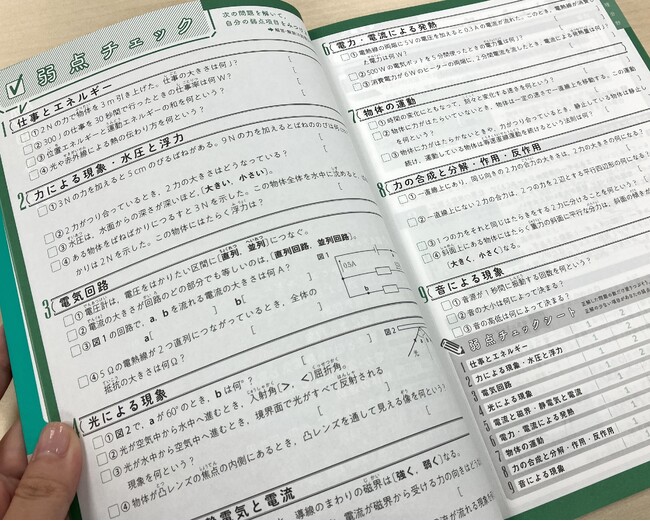 弱点チェック
次の問題を解いて、
自分の弱点項目をみつけ
1 仕事とエネルギー
①2Nの力で物体を3m引き上げた。仕事の大きさは何J?
②300Jの仕事を30秒間で行ったときの仕事率は何W?
③位置エネルギーと運動エネルギーの和を何という?
④光や赤外線による熱の伝わり方を何という?
2 力による現象・水圧と浮力
①3Nの力を加えると5cmのびるばねがある。9Nの力を加えるとばねののびは何cm?
②2力がつり合っているとき、2力の大きさはどうなっている?
③水圧は、水面からの深さが深いほど、〔大きい、小さい〕。
④ある物体をばねばかりにつるすと3Nを示した。この物体全体を水中に沈めると、
かりは2Nを示した。この物体にはたらく浮力は?
3 電気回路
①電圧計は、電圧をはかりたい区間に〔直列、並列〕につなぐ。
②電流の大きさが回路のどの部分でも等しいのは、〔直列回路、並列回路〕。
③図1の回路で、a、bを流れる電流の大きさは何A?
a〔 〕 b〔
④5Ωの電熱線が2つ直列につながっているとき、全体の
抵抗の大きさは何Ω?
図1
0.5A
4 光による現象
①図2で、aが60°のとき、bは何°?
②光が空気中から水中へ進むとき、入射角〔>、<〕屈折角。
③光が水中から空気中へ進むとき、境界面で光がすべて反射される
現象を何という?
④物体が凸レンズの焦点の内側にあるとき、凸レンズを通して見える像を何という?
図2
光
静電気と電流
導線のまわりの磁界は〔強く、弱く〕なる。
電流が磁界から受ける力の向きはどう
6 電力・電流による発熱
①電熱線の両端に5Vの電圧を加えると0.3Aの電流が流れた。このとき、電熱線が消費
た電力は何W?
②500Wの電気ポットを5分間使ったときの電力量は何J?
③消費電力が6Wのヒーターの両端に、2分間電流を流したとき、電流による発熱量は何J?
7 物体の運動
①時間の変化にともなって、刻々と変化する速さを何という?
②物体に力がはたらいていないとき、物体は一定の速さで一直線上を移動する。この運動
を何という?
③物体に力がはたらかないときや、力がつり合っているとき、静止している物体は静止し
続け、運動している物体は等速直線運動を続けるという法則は何?
8 力の合成と分解・作用・反作用
①一直線上にあり、同じ向きの2力の合力の大きさは、2力の大きさの何になる?
②一直線上にない2力の合力は、2つの力を2辺とする平行四辺形の何になる?
③1つの力をそれと同じはたらきをする2力に分けることを何という?
④斜面上にある物体にはたらく重力の斜面に平行な分力は、斜面の傾きが
〔大きく、小さく〕なる。
9 音による現象
①音源が1秒間に振動する回数を何という?
②音の大小は何によって決まる?
③音の高低は何によって決まる?
弱点チェックシート
1 仕事とエネルギー
2 力による現象・水圧と浮力
3 電気回路
4 光による現象
5 電流と磁界・静電気と電流
6 電力・電流による発熱
7 物体の運動
8 力の合成と分解・作用・反作用
9 音による現象